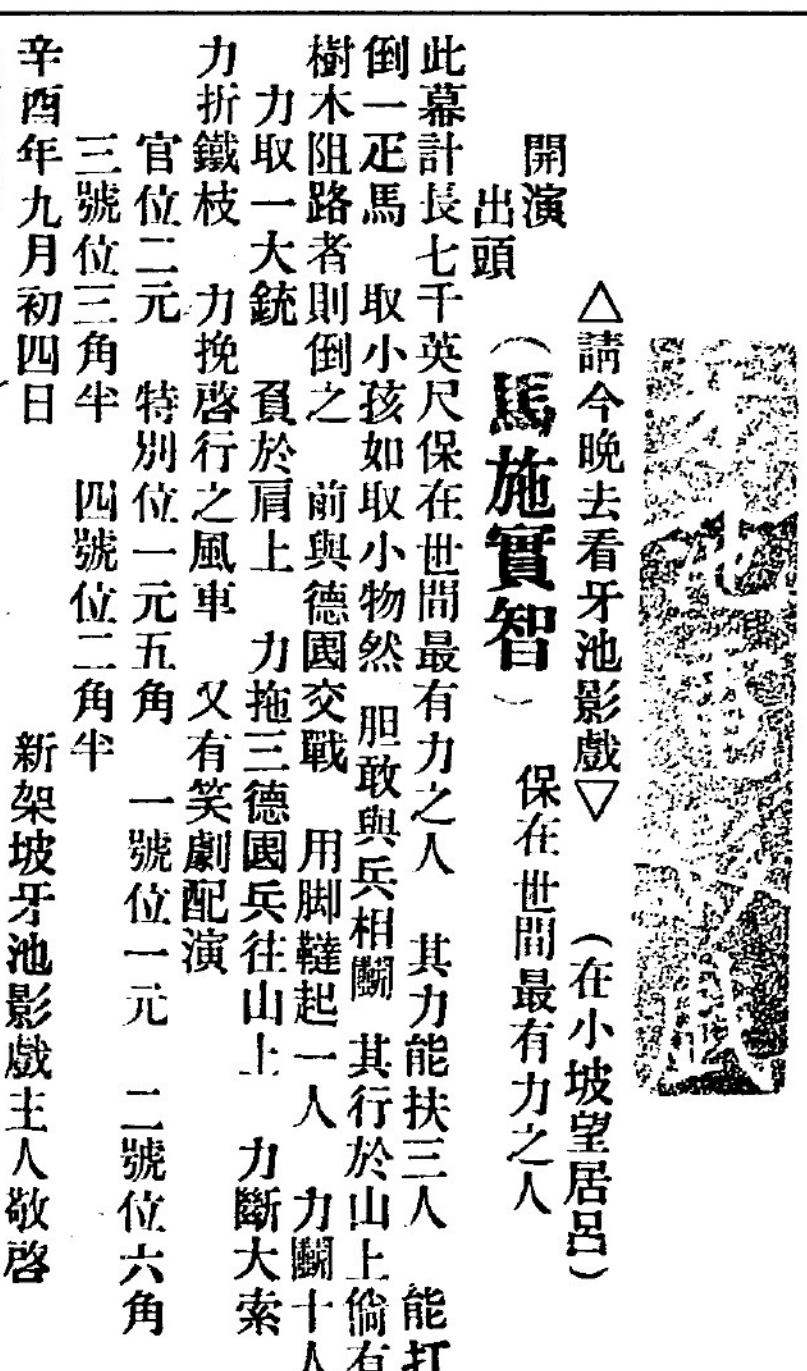 △請今晚去看牙池影戲▽ （在小坡望居呂）
開演
出頭 （馬施實智） 保在世間最有力之人
此幕計長七千英尺保在世間最有力之人 其力能扶三人 能打
倒一疋馬 取小孩如取小物然 胆敢與兵相鬬 其行於山上倘有
樹木阻路者則倒之 前與德國交戰 用脚韃起一人 力鬬十人
力取一大銃 負於肩上 力拖三德國兵往山上 力斷大索
力折鐵枝 力挽啓行之風車 又有笑劇配演
官位二元 特別位一元五角 一號位一元 二號位六角
三號位三角半 四號位二角半
辛酉年九月初四日 新架坡牙池影戲主人敬啓